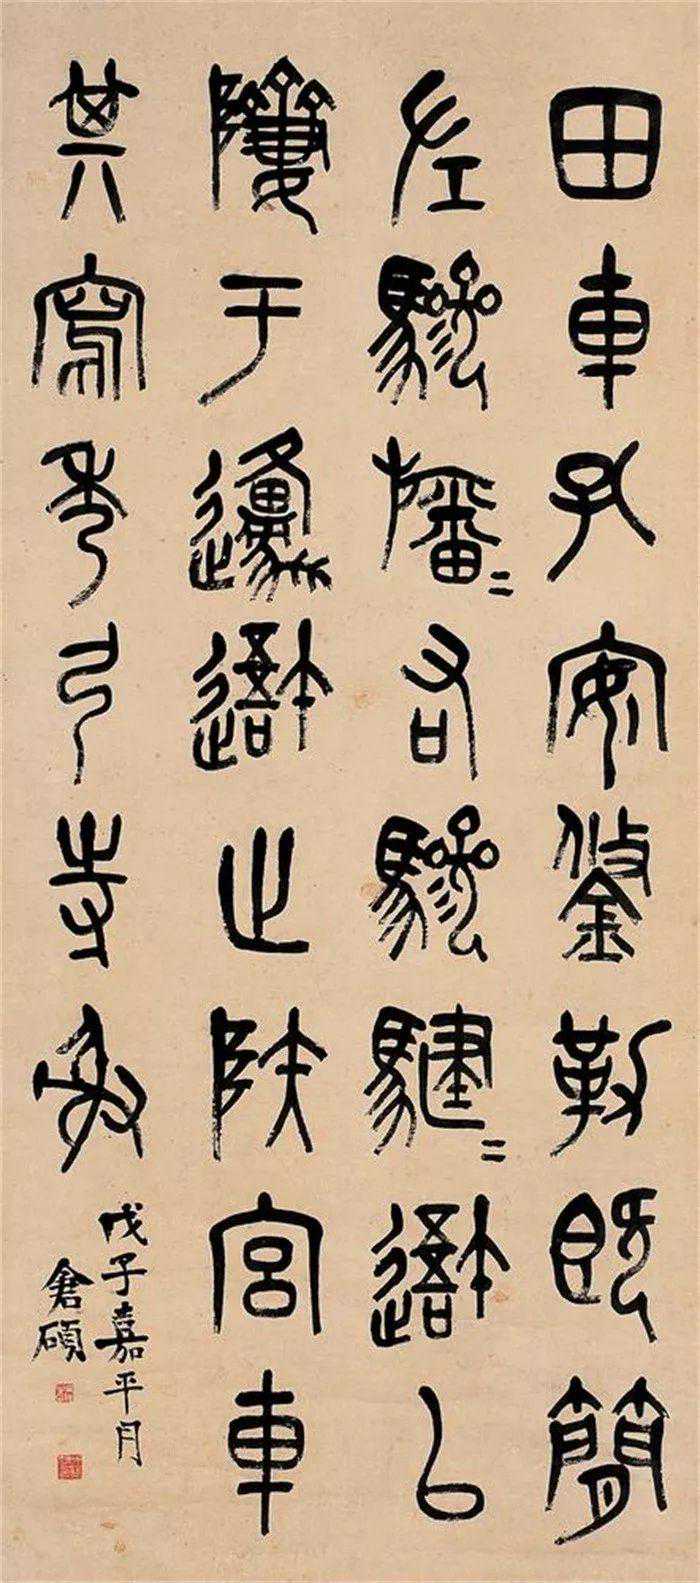 田車孔安鋚勒既簡
左驂旛=右驂騝=以
隮于邍止陕宮車
其寫秀弓寺射
戊子嘉平月
倉碩